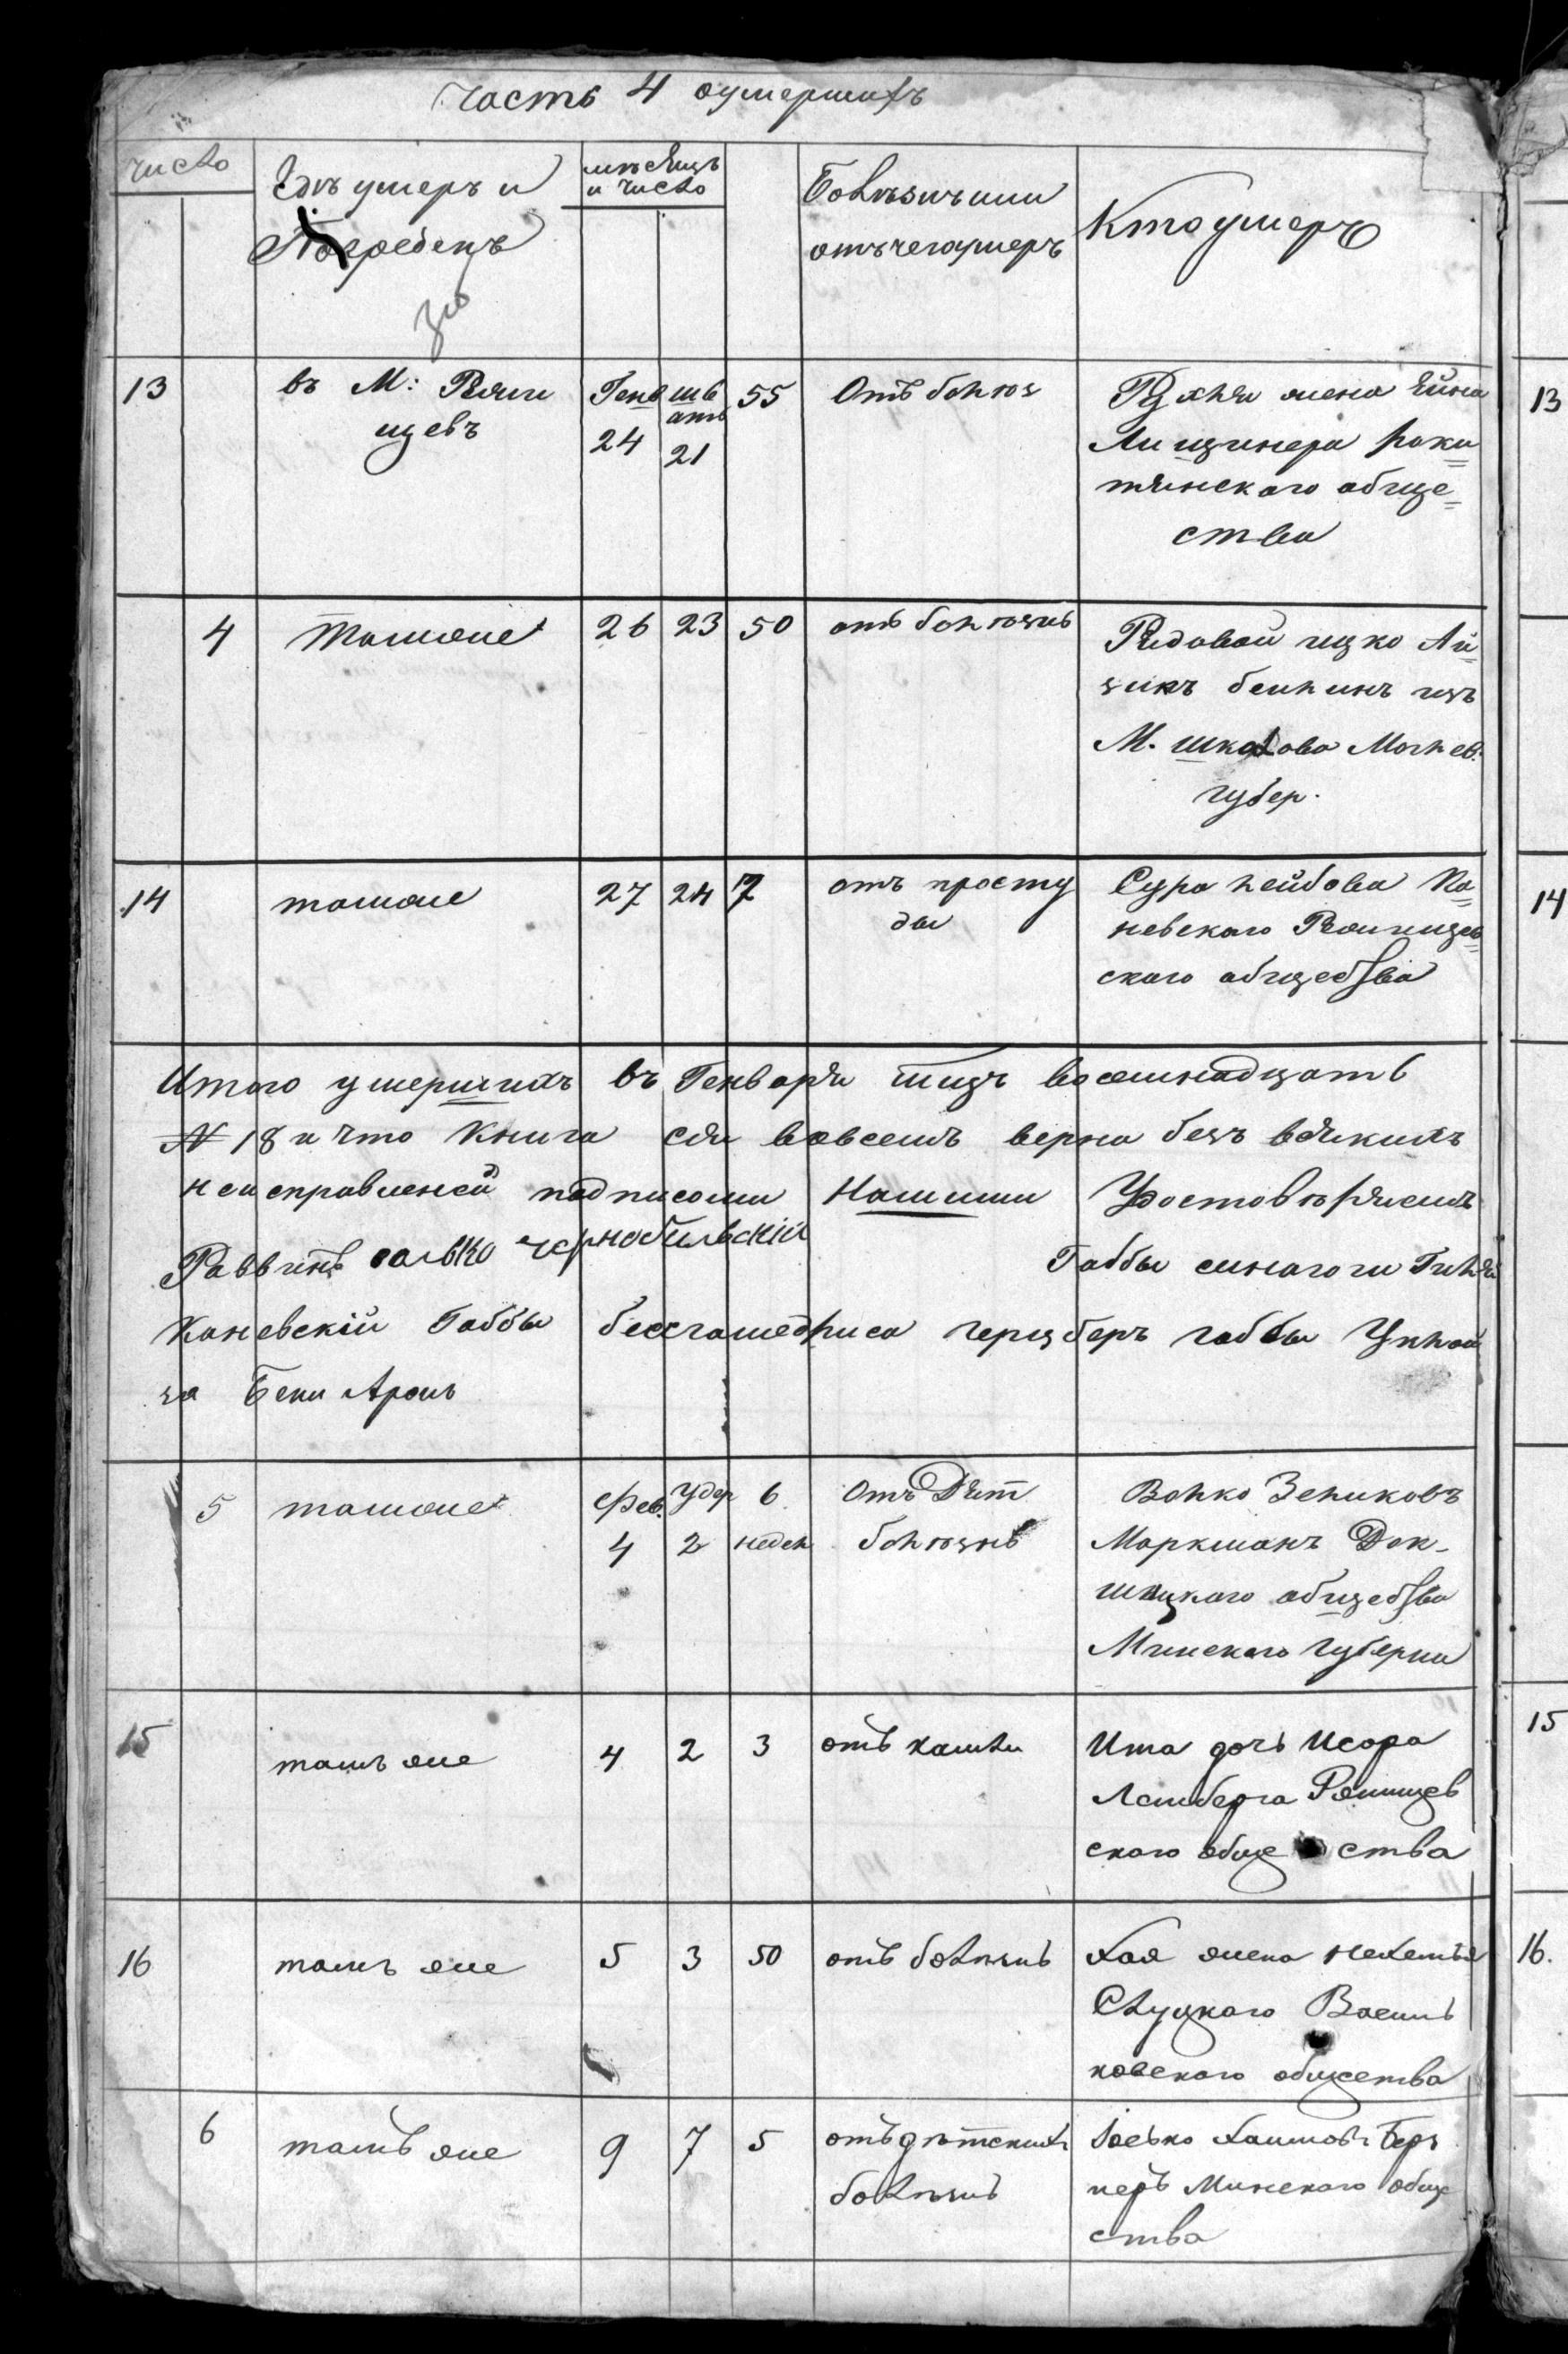 Часть 4 оумершихъ
число
Гдѣ умеръ и
Погребенъ
мѣсяцъ
и число
Болѣзнъ или
отъ чего умеръ
Кто умеръ
13
въ М: Ржи
щевъ
Генв
24
шв
атъ
21
55
Отъ
жена
Лищинера Роки
тянскаго обще
ства
4
Тамже
26
23
50
отъ болѣзнь
Рядовой ицко Ай
зикъ изъ
М. шклова Могилев.
губер.
14
тамже
27
24
7
отъ просту
ды
Сура лейбова Ка
невскаго Ржищев
скаго общества
Итого умершихъ въ Генваря восемнадцать
№ 18 и что Книга сія вовсемъ верна безъ всякихъ
неисправленей подписами Нашими Удостовѣряемъ
Раввинъ чернобильскій
Габбы синагоги
Каневскій Габбы бесгамедриса герцберъ габбы
за Бени Аронъ
5
тамже
Фев.
4
Удер
2
6
недел
Отъ Дѣт
болѣзнь
Волко Зеликовъ
Маркманъ Док-
шицкаго общества
Минскаго Губерни
15
тамъ же
4
2
3
отъ кашли
Ита дочь Исора
Лемберга Ржищев
скаго обще ства
16
тамъ же
5
3
50
отъ болѣзнь
Хая жена Нехемья
Слуцкаго Василь
ковскаго общества
6
тамъ же
9
7
5
отъ дѣтскихъ
болѣзнь
Іосько Хаимовъ
Минскаго обще
ства
13
14
15
16.